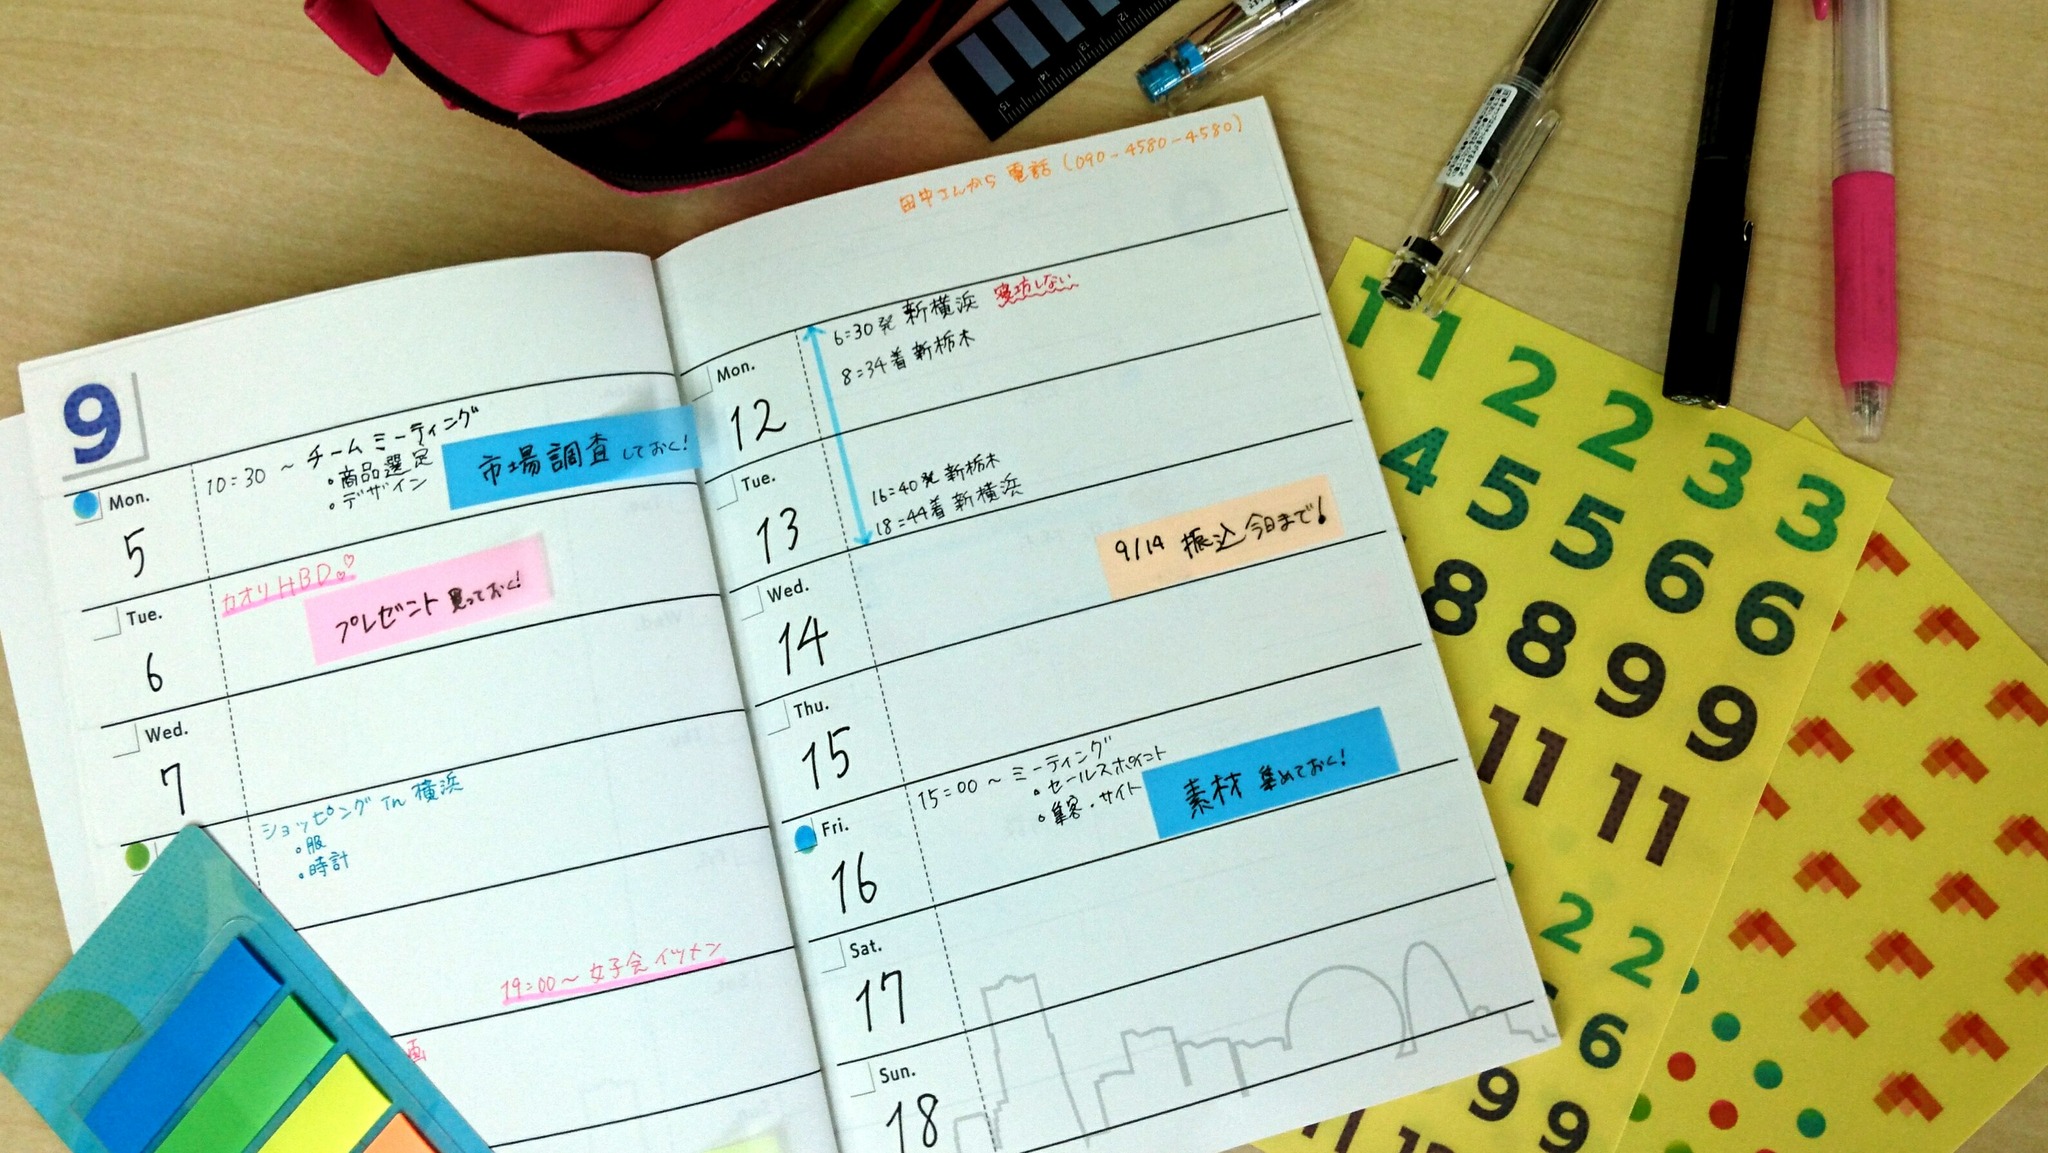 9
Mon.
5
10:30 ~ チームミーティング
・商品選定
・デザイン
市場調査しておく!
Tue.
6
カオリHBD♡
プレゼント買っておく!
Wed.
7
ショッピング in 横浜
・服
・時計
19:00~ 女子会 イツメン
画
田中さんから電話(090-4580-4580)
Mon.
12
6:30発 新横浜 寝坊しない
8:34着 新栃木
Tue.
13
16:40発 新栃木
18:44着 新横浜
Wed.
14
9/14 振込 今日まで!
Thu.
15
Fri.
16
15:00~ ミーティング
・セールスポイント
・集客・サイト
素材 集めておく!
Sat.
17
Sun.
18
15 14 13 12
1 1 2 2 3 3
4 5 5 6 6
8 8 9 9
11 11
2 2
6
9 9
11